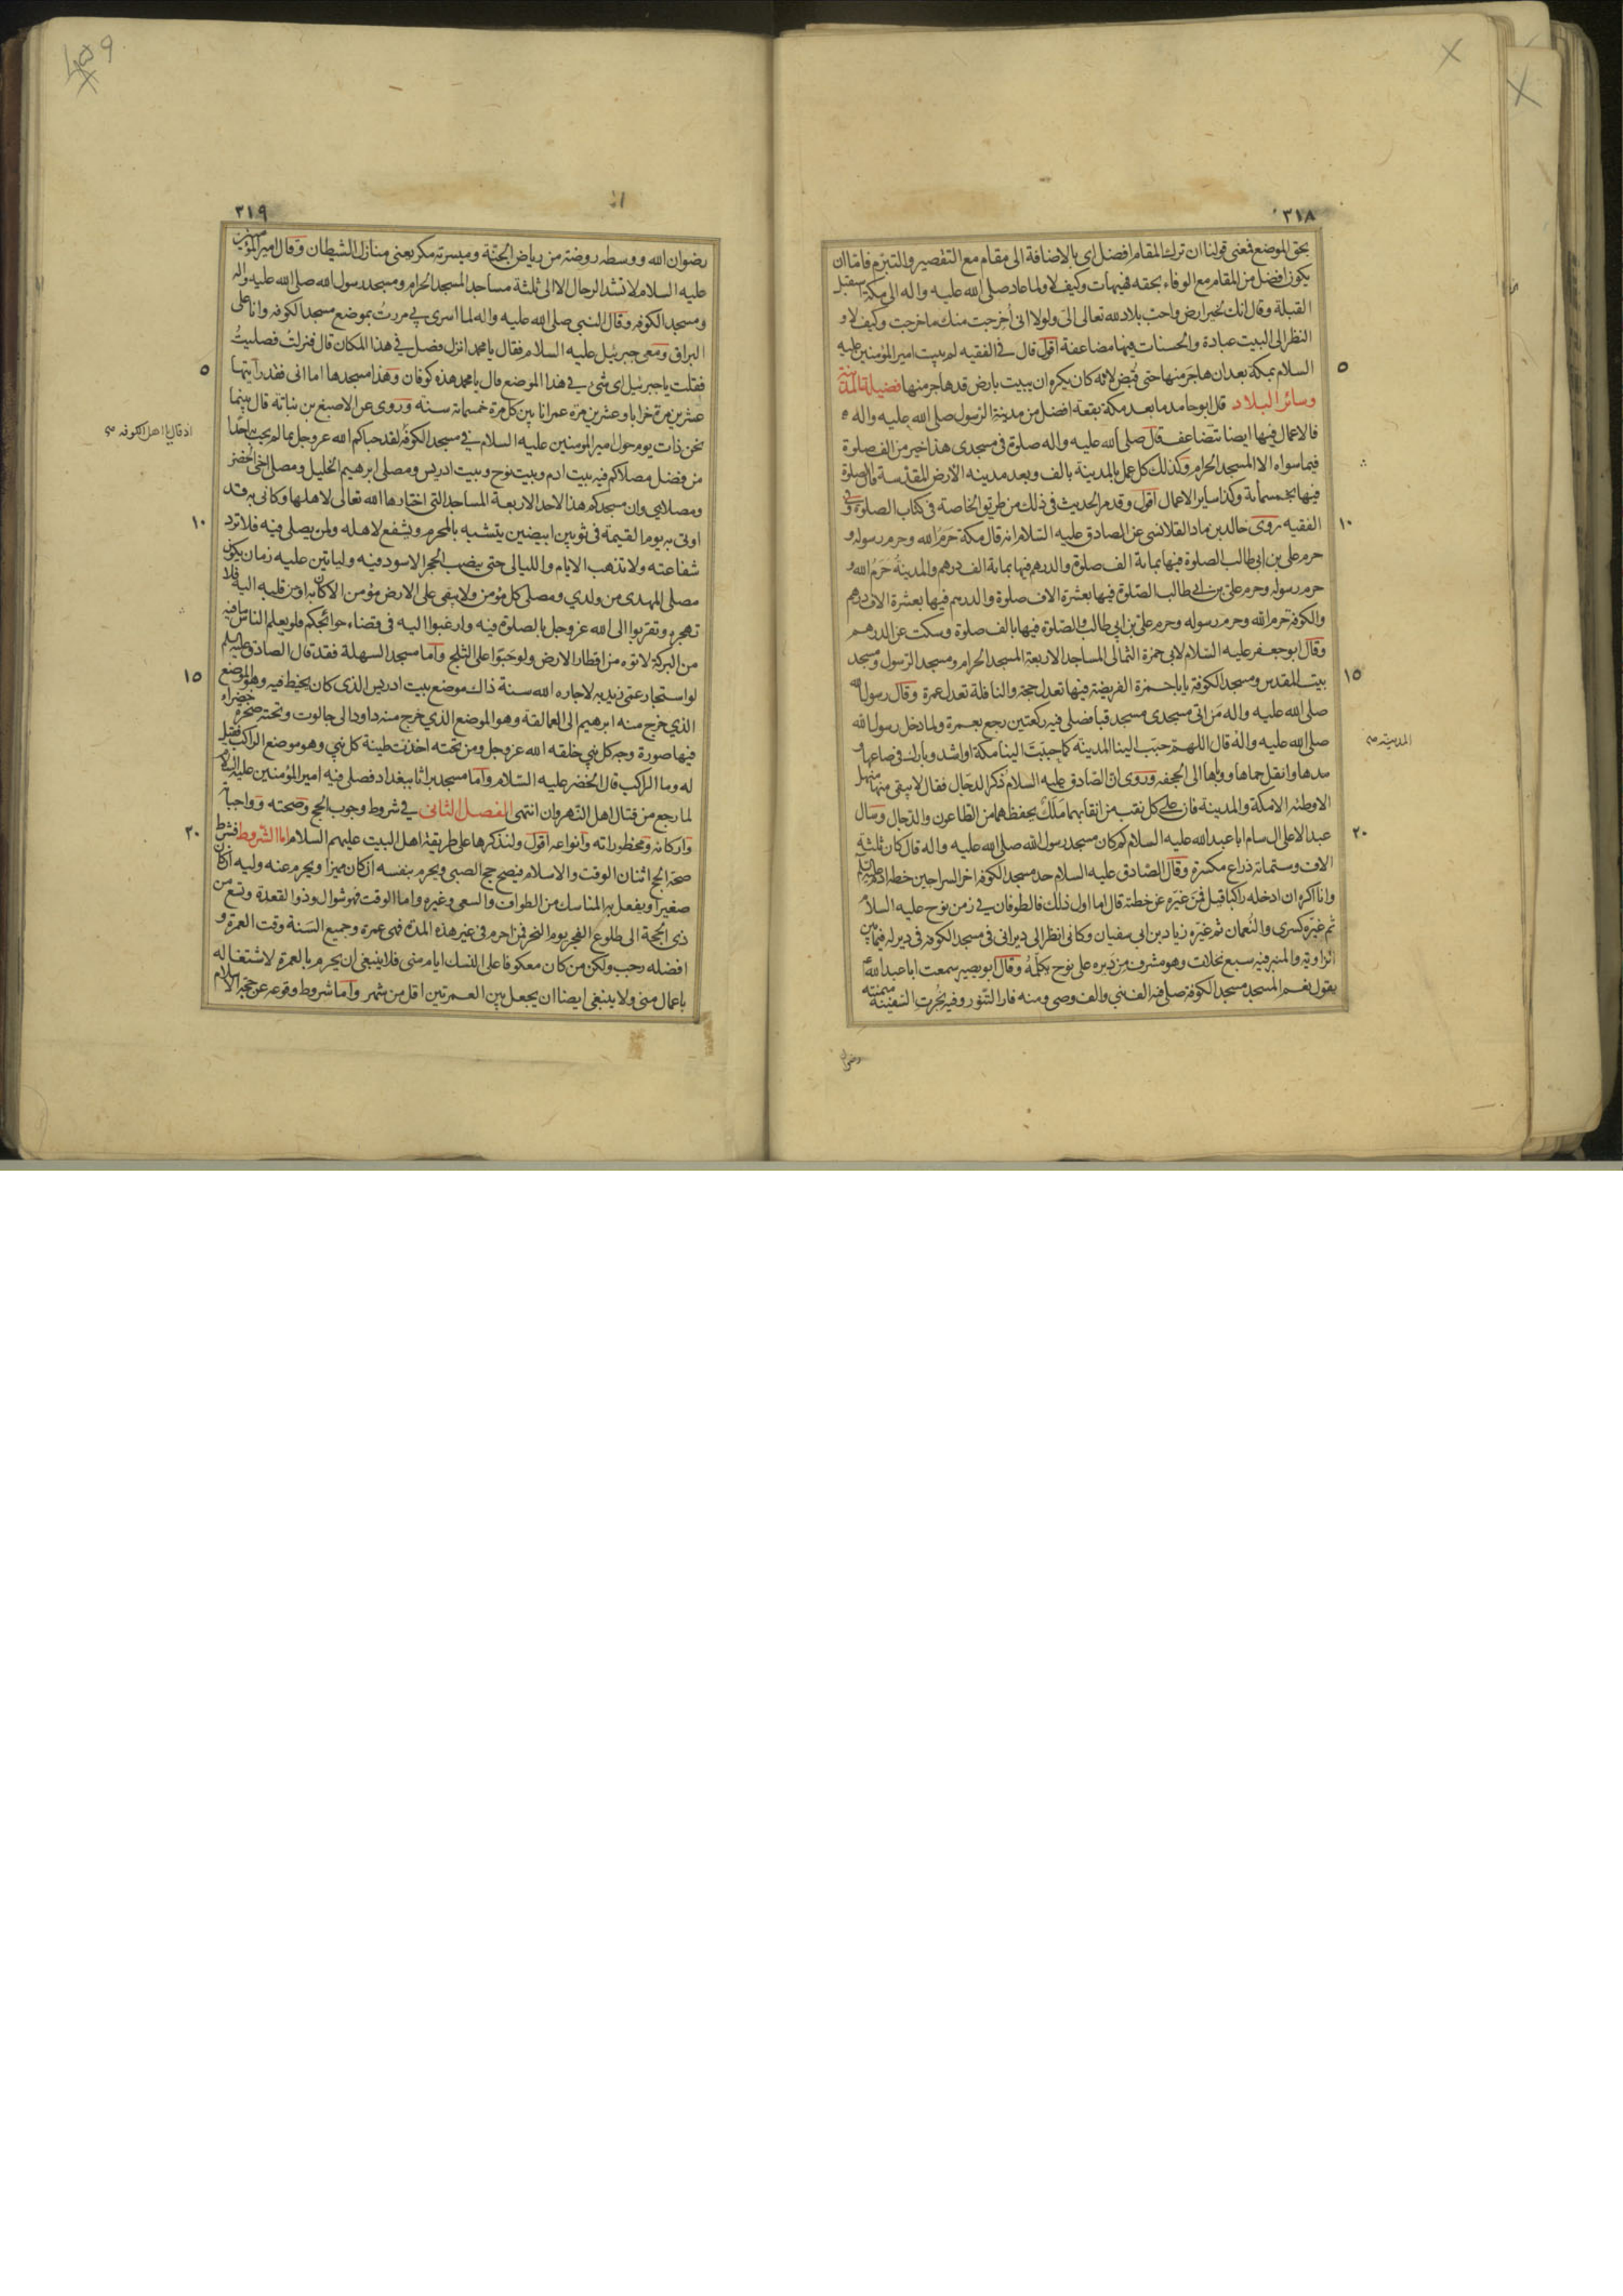 ٣١٨
بحق الموضع فمعنى قولنا ان ترك المقام افضل اى بالاضافة الى مقام مع التقصير والتبرّم فامّا ان
يكون افضل من المقام مع الوفاء بحقه فهيهات وكيف لا ولما عاد صلى الله عليه واله الى مكة استقبل
القبلة وقال انك لخير ارض واحب بلاد لله تعالى الىّ ولولا انى اُخرجت منك ما خرجت وكيف لا و
النظر الى البيت عبادة والحسنات فيها مضاعفة اقول قال فى الفقيه لم يبت امير المؤمنين عليه
٥
السلام بمكة بعد ان هاجر منها حتى قُبض لانه كان يكره ان يبيت بارض قد هاجر منها فضيلة المدينة
وسائر البلاد قال ابو حامد ما بعد مكة بقعة افضل من مدينة الرّسول صلى الله عليه واله
فالاعمال فيها ايضا تتضاعف قال صلى الله عليه واله صلوة فى مسجدى هذا خير من الف صلوة
فيما سواه الا المسجد الحرام وكذلك كل عمل بالمدينة بالف وبعد مدينه الارض المقدسة فان الصلوة
فيها بخمسمائة وكذا ساير الاعمال اقول وقد مر الحديث فى ذلك من طريق الخاصة فى كتاب الصلوة وفى
١٠
الفقيه روى خالد بن ماد القلانسى عن الصادق عليه السّلام انه قال مكة حرم الله وحرم رسوله و
حرم على بن ابى طالب الصلوة فيها بماية الف صلوة والدرهم فيها بماية الف درهم والمدينة حرم الله و
حرم رسوله وحرم على بن ابى طالب الصّلوة فيها بعشرة الاف صلوة والدرهم فيها بعشرة الاف درهم
والكوفة حرم الله وحرم رسوله وحرم على بن ابى طالب والصّلوة فيها بالف صلوة وسكت عن الدرهم
وقال ابو جعفر عليه السّلام لابى حمزة الثمالى المساجد الاربعة المسجد الحرام ومسجد الرّسول ومسجد
١٥
بيت المقدس ومسجد الكوفة يابا حمزة الفريضة فيها تعدل حجة والنافلة تعدل عمرة وقال رسول الله
صلى الله عليه واله من اتى مسجدى مسجد قبا فصلى فيه ركعتين رجع بعمرة ولما دخل رسول الله
صلى الله عليه واله قال اللهمّ حبّب الينا المدينة كما حبّبت الينا مكة او اشد وبارك فى صاعها و
المدينة صح
مدها وانقل حماها ووباها الى الجحفه وروى ان الصّادق عليه السلام ذكر الدجّال فقال لا يبقى منها منهل
الا وطئه الا مكة والمدينة فان على كل نقب من انقابهما ملك يحفظهما من الطاعون والدّجال وسال
٢٠
عبد الاعلى ال سام ابا عبد الله عليه السلام كم كان مسجد رسول الله صلى الله عليه واله قال كان ثلثة
الاف وستمائة ذراع مكسّرة وقال الصّادق عليه السلام حد مسجد الكوفه اخر السراجين خطه ادم عليه السلم
وانا اكره ان ادخله راكبا قيل فمن غيّره عن خطته قال اما اول ذلك فالطوفان فى زمن نوح عليه السلام
ثم غيّره كسرى والنُعمان ثم غيّره زياد بن ابى سفيان وكانى انظر الى ديرانى فى مسجد الكوفه فى دير له فيما بين
الزاوية والمنبر فيه سبع نخلات وهو مشرف من ديره على نوح يكلمهُ وقال ابو بصير سمعت ابا عبد الله ع
يقول نعم المسجد مسجد الكوفة صلى فيه الف نبى والف وصى ومنه فار التنور وفيه نُجرت السفينة ميمنته
رضوان
٣١٩
رضوان الله ووسطه روضة من رياض الجنّة وميسرته مكر يعنى منازل الشيطان وقال امير المؤمنين
عليه السلام لا تشد الرحال الا الى ثلثة مساجد المسجد الحرام ومسجد رسول الله صلى الله عليه واله
ومسجد الكوفه وقال النبى صلى الله عليه واله لما اسرى بى مررتُ بموضع مسجد الكوفه وانا على
البراق ومعى جبرئيل عليه السلام فقال يا محمد انزل فصل فى هذا المكان قال فنزلت فصليتُ
٥
فقلت يا جبرئيل اى شئ فى هذا الموضع قال يا محمد هذه كوفان وهذا مسجدها اما انى فقد رايتها
عشرين مرة خرابا وعشرين مرة عمرانا بين كل مرة خمسمائة سنة وروى عن الاصبغ بن نباتة قال بينما
نحن ذات يوم حول امير المومنين عليه السلام فى مسجد الكوفة لقد حباكم الله عز وجل بما لم يحب به احدًا
اذ قال يا اهل الكوفه صح
من فضل مصلاكم فيه بيت ادم وبيت نوح وبيت ادريس ومصلى ابرهيم الخليل ومصلى اخى الخضر
ومصلاى وان مسجدكم هذا لاحد الاربعة المساجد التى اختارها الله تعالى لاهلها وكانى به قد
١٠
اوتى به يوم القيمة فى ثوبين ابيضين يتشبه بالمحرم ويشفع لاهله ولمن يصلى فيه فلا ترد
شفاعته ولا تذهب الايام والليالى حتى ينصب الحجر الاسود فيه ولياتين عليه زمان يكون
مصلى المهدى من ولدي ومصلى كل مؤمن ولا يبقى على الارض مؤمن الا كان به او حن قلبه اليه فلا
تهجره وتقربوا الى الله عز وجل بالصلوة فيه وارغبوا اليه فى قضاء حوائجكم فلو يعلم الناس ما فيه
من البركة لاتوه من اقطار الارض ولو حَبوًا على الثلج واما مسجد السهلة فقد قال الصادق عليه السلم
١٥
لو استجار عمّى زيد به لاجاره الله سنة ذاك موضع بيت ادريس الذى كان يخيط فيه وهو الموضع
الذي خرج منه ابرهيم الى العمالقة وهو الموضع الذي خرج منه داود الى جالوت وتحته صخرة خضراء
فيها صورة وجه كل نبي خلقه الله عز وجل ومن تحته اخذت طينة كل نبي وهو موضع الراكب فقيل
له وما الراكب قال الخضر عليه السّلام واما مسجد براثا ببغداد فصلى فيه امير المؤمنين عليه السلام
لما رجع من قتال اهل النّهروان انتهى الفصل الثانى في شروط وجوب الحج وصحته وواجباته
٢٠
واركانه ومحظوراته وانواعه اقول ولنذكرها على طريقة اهل البيت عليهم السلام اما الشروط فشرط
صحة الحج اثنان الوقت والاسلام فيصح حج الصبى ويحرم بنفسه ان كان مميزا ويحرم عنه وليه ان كان
صغيرا ويفعل به المناسك من الطواف والسعى وغيره واما الوقت فهو شوال وذو القعدة وتسع من
ذى الحجة الى طلوع الفجر يوم النحر فمن احرم فى غير هذه المدة فهى عمرة وجميع السّنة وقت العمرة و
افضله رجب ولكن من كان معكوفا على النسك ايام منى فلا ينبغى ان يحرم بالعمرة لاشتغاله
باعمال منى ولا ينبغى ايضا ان يجعل بين العمرتين اقل من شهر واما شروط وقوعه عن حجة الاسلام